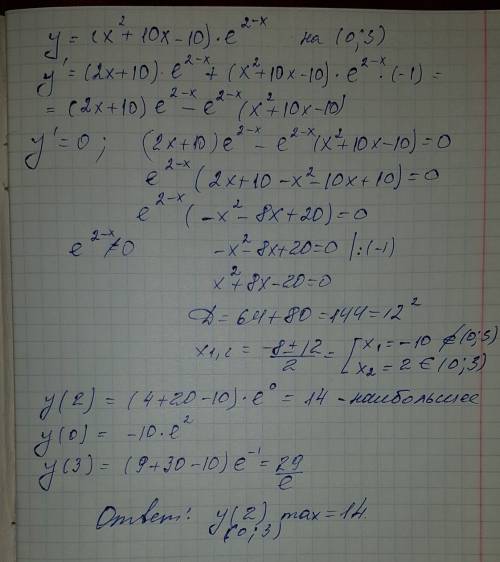 y = (x² + 10x - 10) · e^{2-x} на (0; 3)
y' = (2x+10) · e^{2-x} + (x² + 10x - 10) · e^{2-x} · (-1) =
= (2x+10) e^{2-x} - e^{2-x} (x² + 10x - 10)
y' = 0 ; (2x+10) e^{2-x} - e^{2-x} (x² + 10x - 10) = 0
e^{2-x} (2x + 10 - x² - 10x + 10) = 0
e^{2-x} (-x² - 8x + 20) = 0
e^{2-x} ≠ 0 -x² - 8x + 20 = 0 | : (-1)
x² + 8x - 20 = 0
D = 64 + 80 = 144 = 12²
x₁,₂ = (-8 ± 12)/2 = [ x₁ = -10 ∉ (0; 3)
x₂ = 2 ∈ (0; 3)
y(2) = (4 + 20 - 10) · e⁰ = 14 - наибольшее
y(0) = -10 · e²
y(3) = (9 + 30 - 10) e⁻¹ = 29/e
Ответ: y(2) max = 14.
(0; 3)